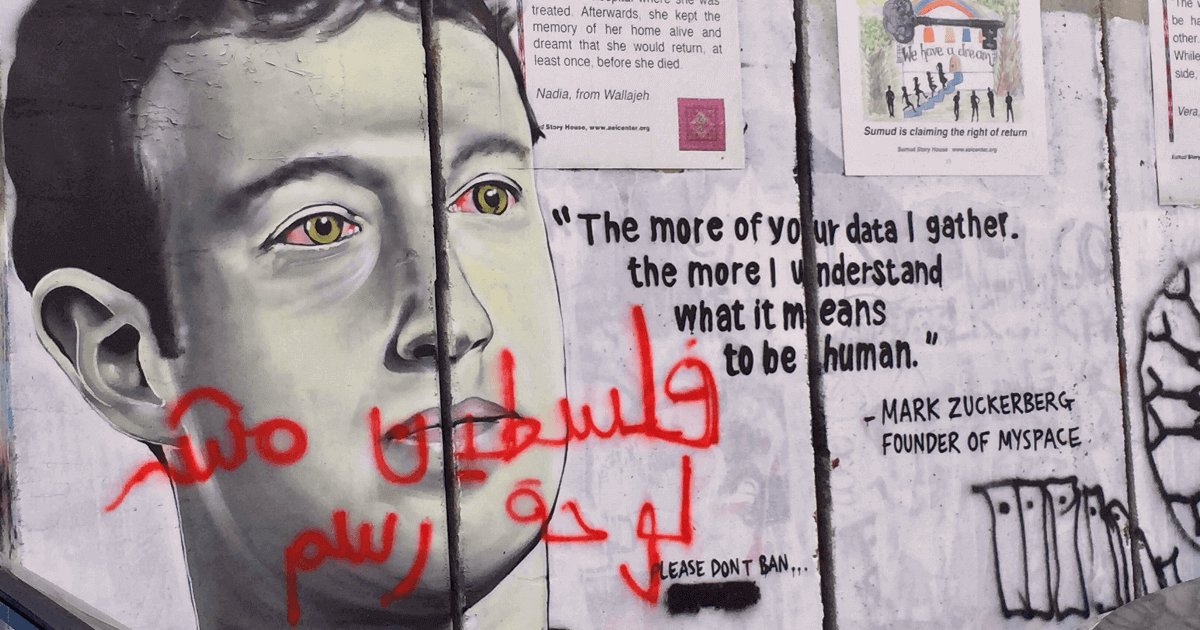 treated. Afterwards, she kept the
memory of her home alive and
dreamt that she would return, at
least once, before she died.
Nadia, from Wallajeh
Story House, www.aeicenter.org
We have a dream
Sumud is claiming the right of return
Sumud Story House www.aeicenter.org
be
other.
While
side,
Vera,
Sumud
"The more of your data I gather.
the more I understand
what it means
to be human."
- MARK ZUCKERBERG
FOUNDER OF MYSPACE
فلسطين مش
لوحة رسم
PLEASE DONT BAN...